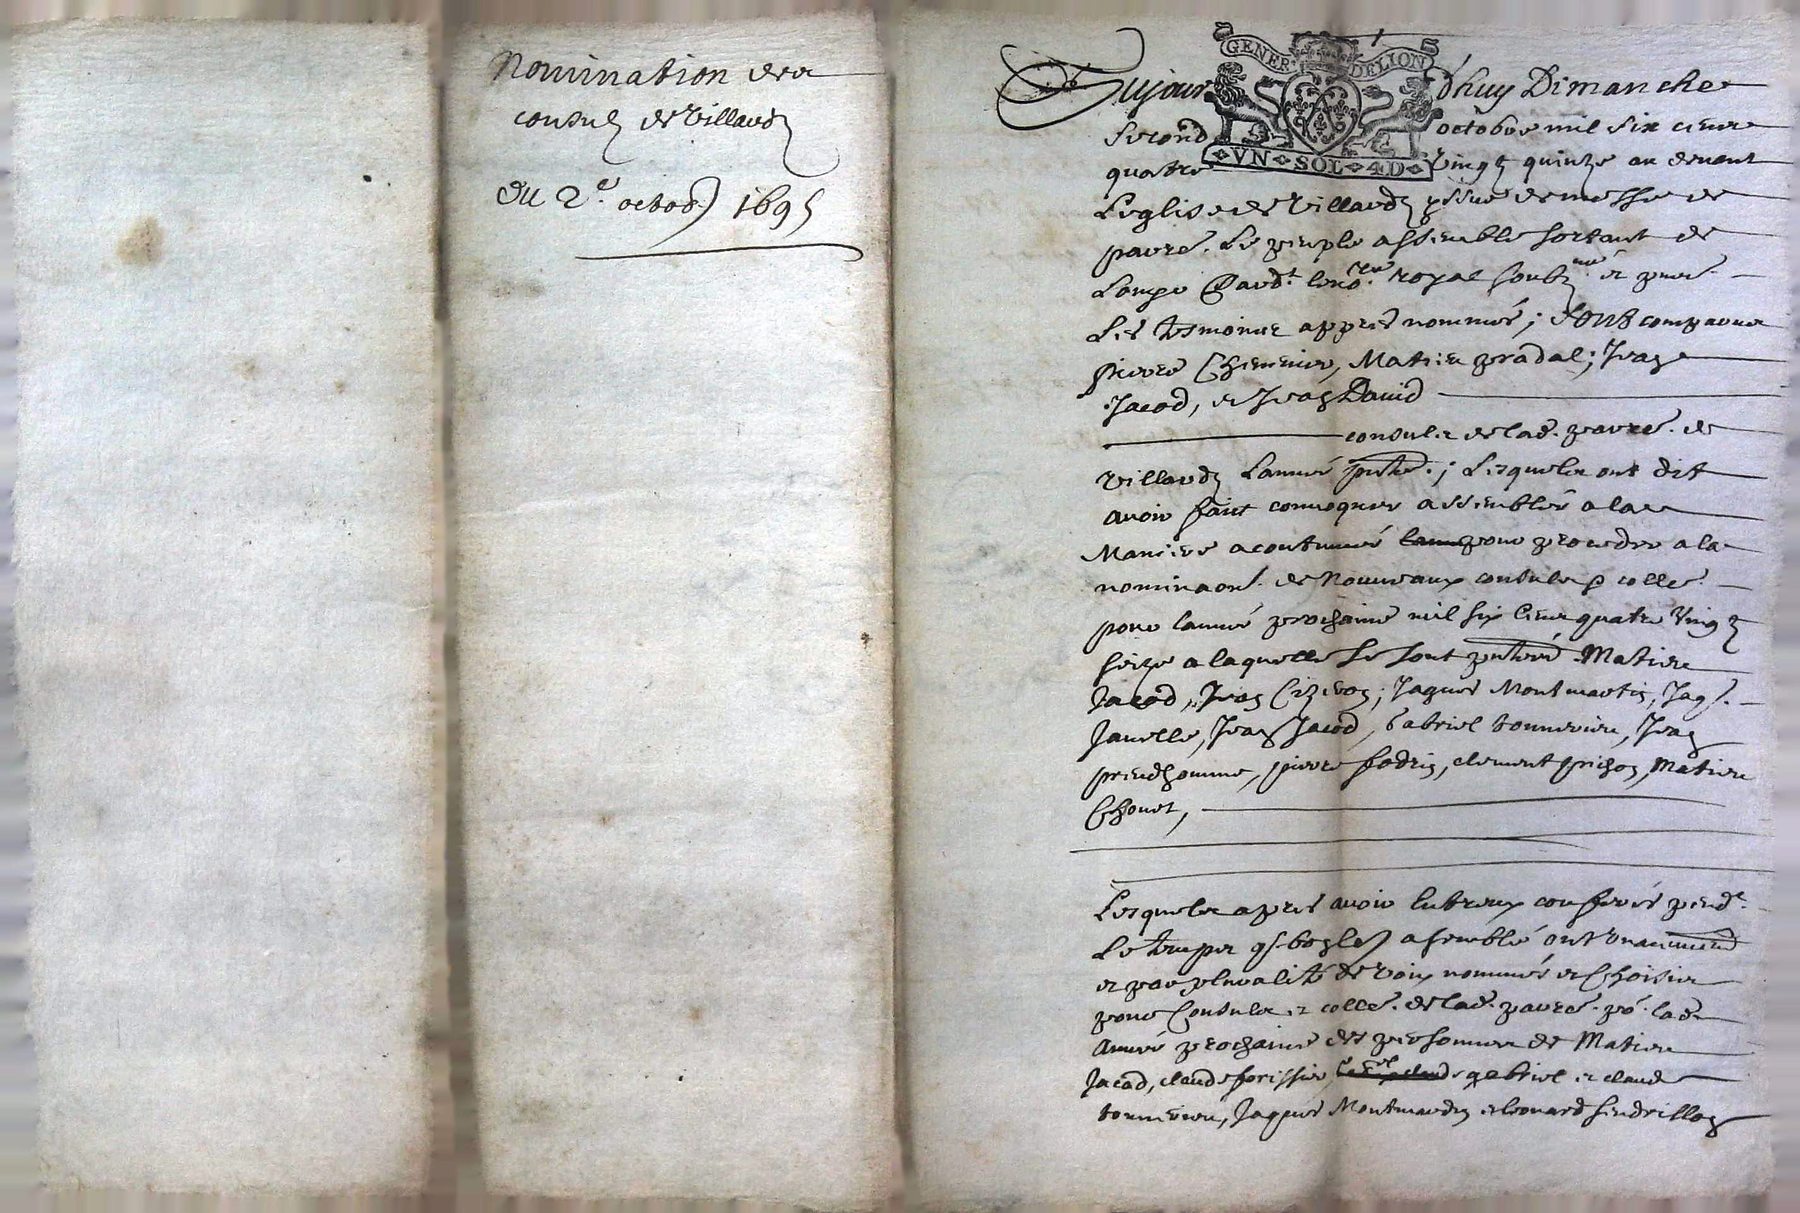 Nomination des
consulz de Villardz
du 2e. octob. 1695
GENER DELION
VN SOL 4D
Aujourd'huy Dimanche
second octobre mil six cens
quatre vingtz quinze au devant
L'eglise de Villardz yssue de messe de
parre. Le peuple assemblé sortant de
Pard.t le no.re royal soubz.né et pres.
Les tesmoins appres nommés; sont comparus
pierre Chermier, Matieu pradal; Jean
Jacod, et Jean David
consulz de lad. parre. de
Villardz L'année pnte.; Lesquels ont dit
avoir fait convoquer assemblée a la
Maniere acoutumée pour proceder a la
nominaon. de Nouveaux consulz et colle.
pour l'année prochaine mil six cens quatre vingtz
seize a laquelle se sont pntés. Matieu
Jacod, Jean; Jaques Montmartin, Jaq.
Janelle, Jean Jacod, Gabriel tonnerieu, Jean
preudhomme, pierre fodrin, clement prichon, Matieu
Chovet,
Lesquels apres avoir entreux conferés pend.
Le temps assemblé ont unanimement
et par pluralité de voix nommés et Choisis
pour Consulz et colle. de lad. parre. po. lad.
année prochaine des personnes de Matieu
Jacod, claude forissier, gabriel et claude
tonnerieu, Jaques Montmardin et leonard sendrillon